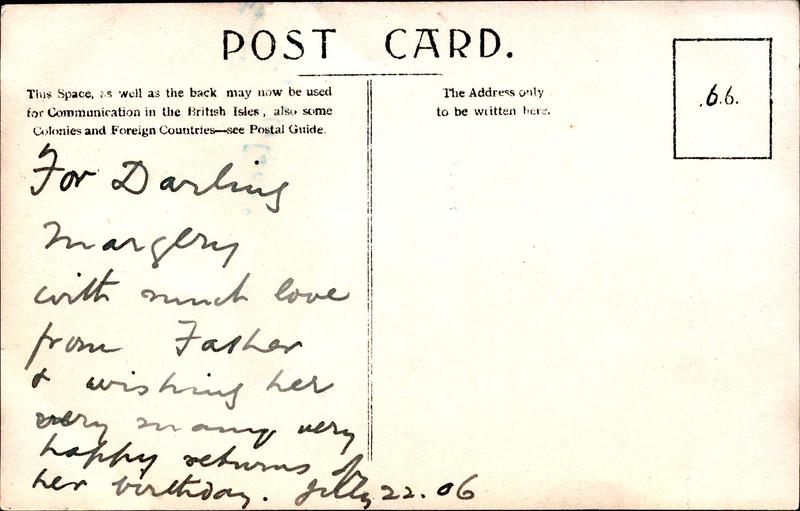 POST CARD.
This Space, as well as the back may now be used
for Communication in the British Isles, also some
Colonies and Foreign Countries—see Postal Guide.
The Address only
to be written here.
.6.6.
For Darling
Margery
with much love
from Father
& wishing her
very many very
happy returns of
her birthday. July 22. 06